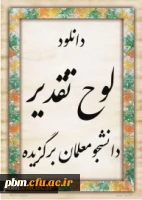 دانلود
لوح تقدیر
دانشجو معلمان برگزیده
pbm.cfu.ac.ir